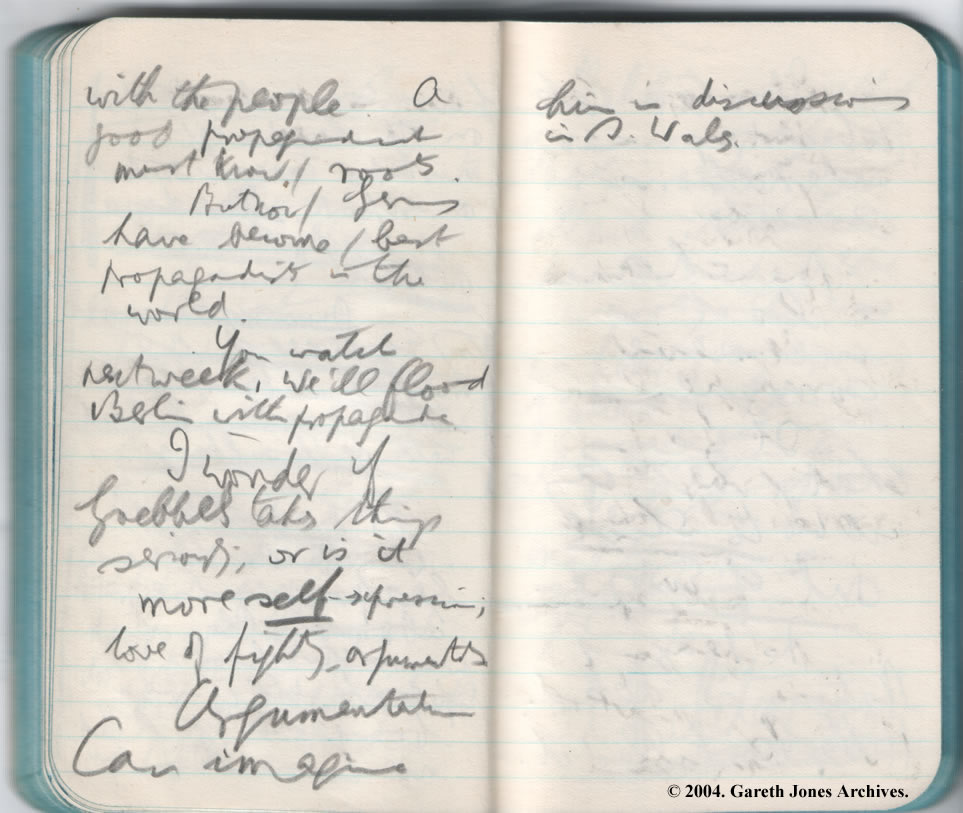 with the people. A
good propagandist
must know / roots.
But now / Germans
have become / best
propagandists in the
world.
You watch
next week, we'll flood
Berlin with propaganda.
I wonder if
Goebbels takes things
seriously, or is it
more self-expression,
love of fights, arguments
Argumentative
Can imagine
him in discussions
in S. Wales.
© 2004. Gareth Jones Archives.